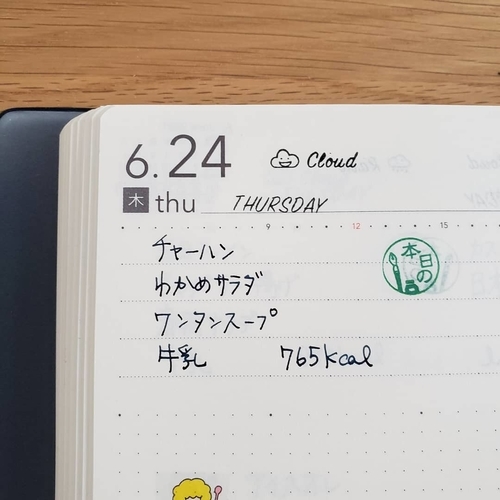 6.24 Cloud
木 thu THURSDAY
9 12 15
チャーハン
本日の
わかめサラダ
ワンタンスープ
牛乳 765kcal